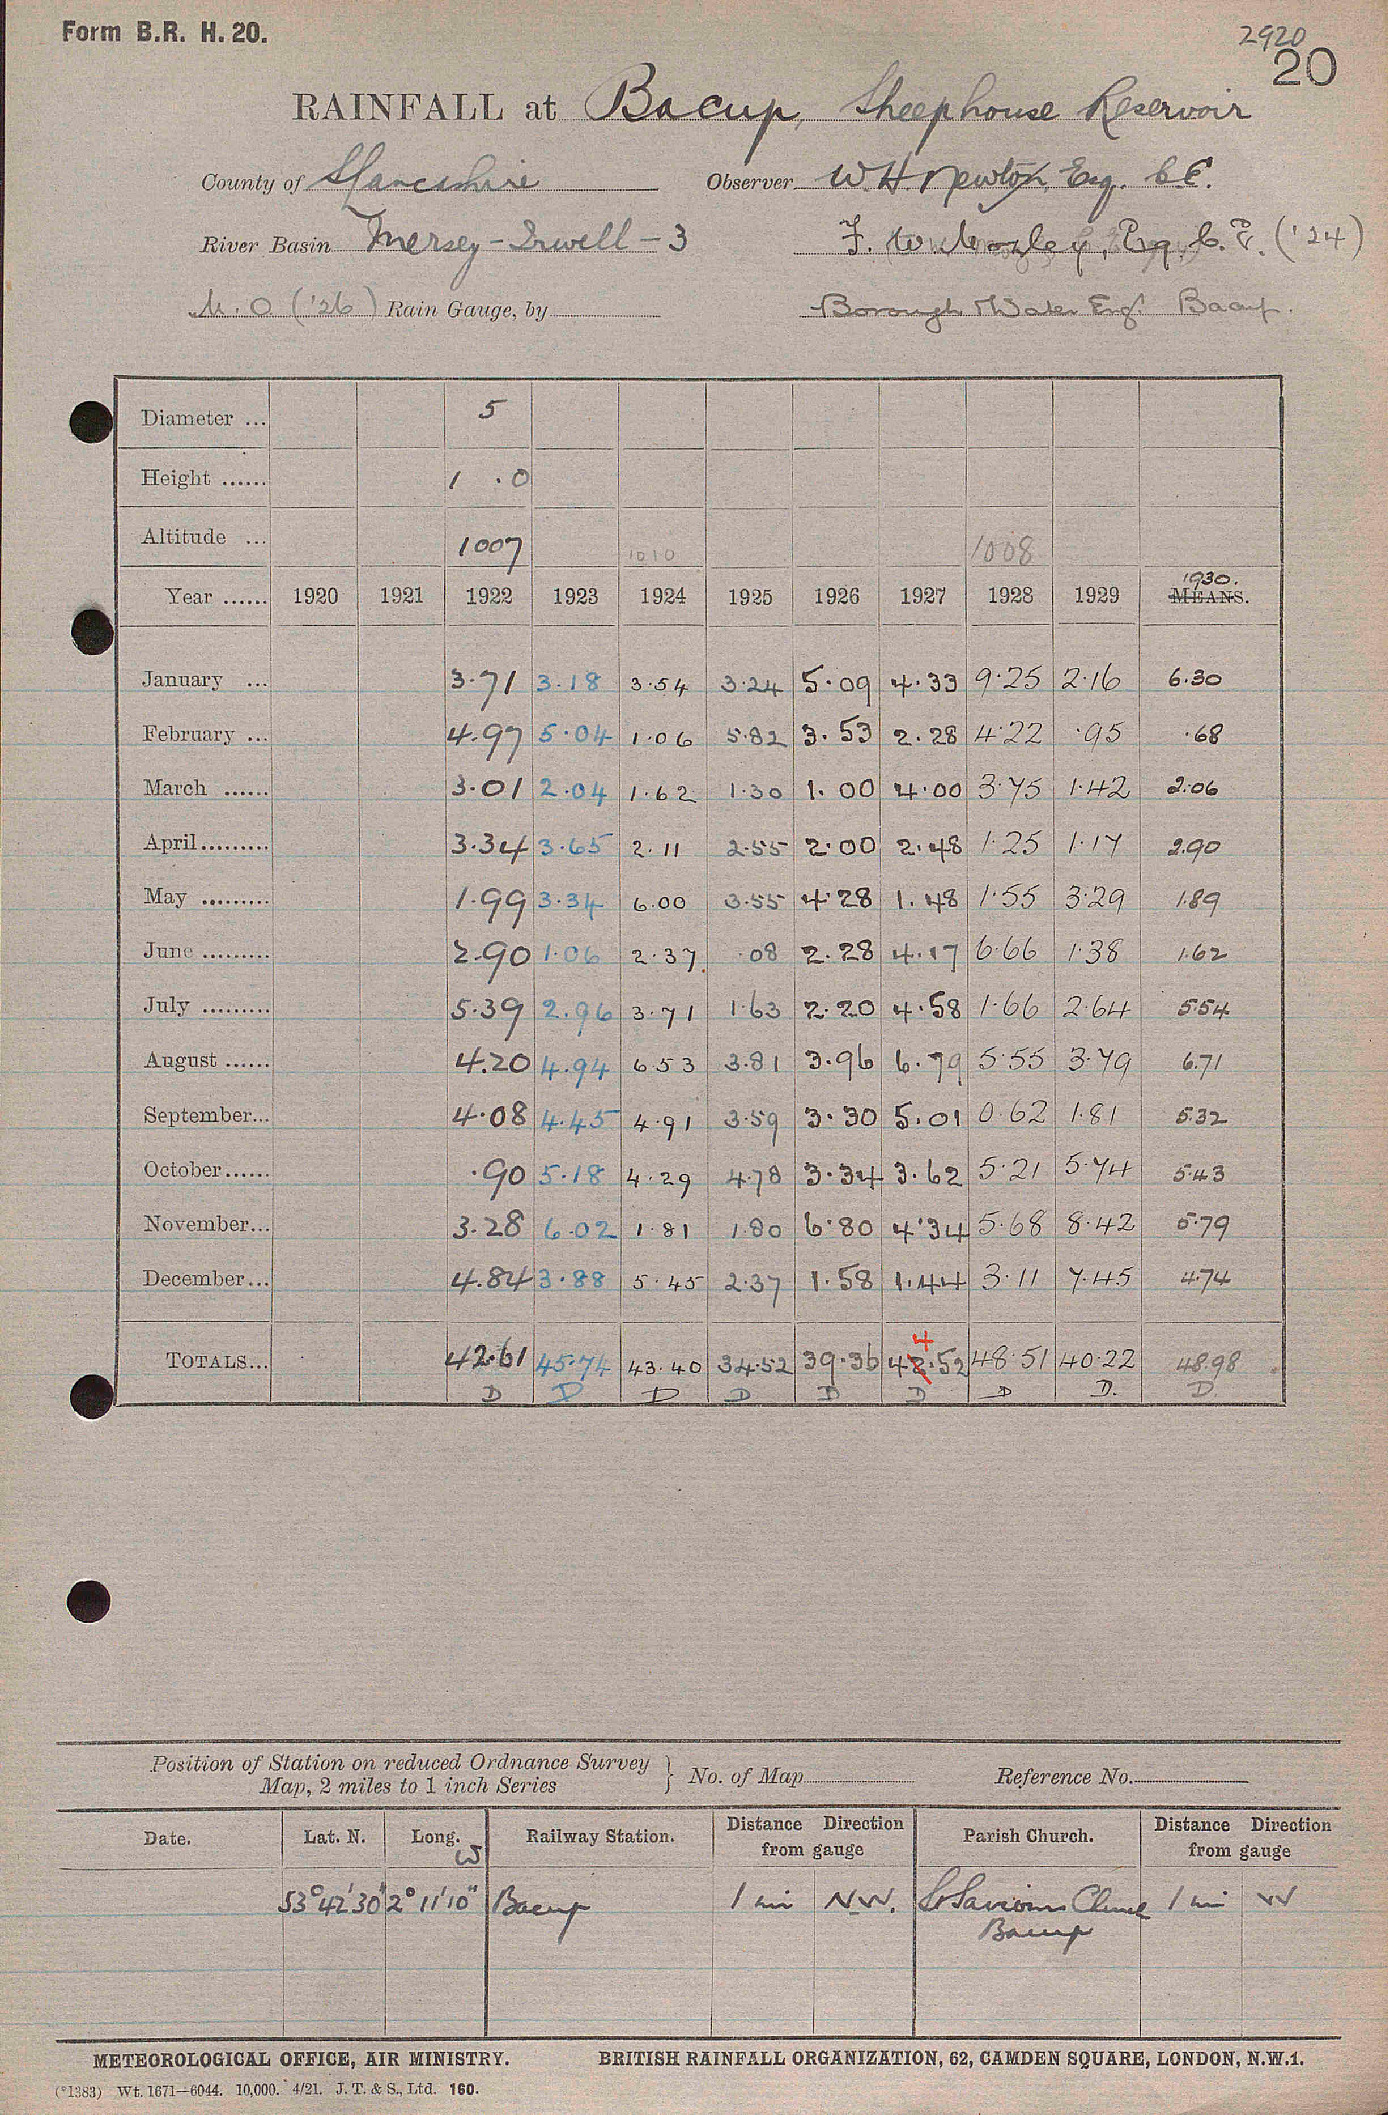 Form B.R. H. 20.
2920
20
RAINFALL at Bacup, Sheephouse Reservoir
County of Lancashire Observer W H Newton Esq. C.E.
River Basin Mersey - Irwell - 3 F. W. Mozley, Esq. C. E. ('24)
M. O ('26) Rain Gauge, by Borough & Water Eng. Bacup.
Diameter ... 5
Height ...... 1 . 0
Altitude ... 1007 1010 1008
1930.
Year ...... 1920 1921 1922 1923 1924 1925 1926 1927 1928 1929 MEANS.
January ... 3.71 3.18 3.54 3.24 5.09 4.33 9.25 2.16 6.30
February ... 4.97 5.04 1.06 5.82 3.53 2.28 4.22 .95 .68
March ...... 3.01 2.04 1.62 1.30 1.00 4.00 3.75 1.42 2.06
April......... 3.34 3.65 2.11 2.55 2.00 2.48 1.25 1.17 2.90
May ......... 1.99 3.34 6.00 3.55 4.28 1.48 1.55 3.29 1.89
June ......... 2.90 1.06 2.37 .08 2.28 4.17 6.66 1.38 1.62
July ......... 5.39 2.96 3.71 1.63 2.20 4.58 1.66 2.64 5.54
August ...... 4.20 4.94 6.53 3.81 3.96 6.79 5.55 3.79 6.71
September... 4.08 4.45 4.91 3.59 3.30 5.01 0.62 1.81 5.32
October...... .90 5.18 4.29 4.78 3.34 3.62 5.21 5.74 5.43
November... 3.28 6.02 1.81 1.80 6.80 4.34 5.68 8.42 5.79
December... 4.84 3.88 5.45 2.37 1.58 1.44 3.11 7.45 4.74
4
TOTALS... 42.61 45.74 43.40 34.52 39.36 42.52 48.51 40.22 48.98
D D D D D D D D. D.
Position of Station on reduced Ordnance Survey } No. of Map Reference No.
Map, 2 miles to 1 inch Series
Date. Lat. N. Long. W Railway Station. Distance Direction from gauge Parish Church. Distance Direction from gauge
53° 42' 30" 2° 11' 10" Bacup 1 mi N.W. St Saviours Church 1 mi W
Bacup
METEOROLOGICAL OFFICE, AIR MINISTRY. BRITISH RAINFALL ORGANIZATION, 62, CAMDEN SQUARE, LONDON, N.W.1.
(*1383) Wt. 1671—6044. 10,000. 4/21. J. T. & S., Ltd. 160.